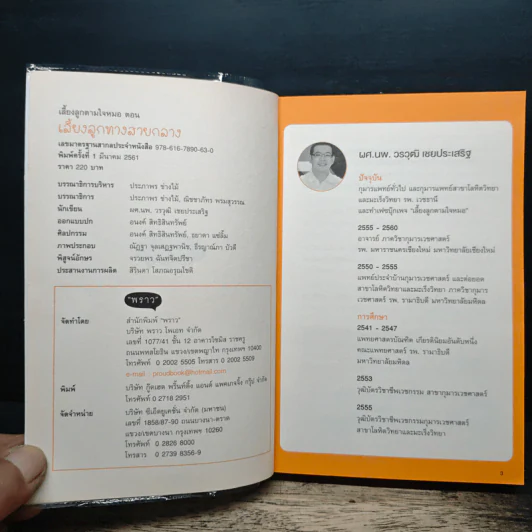 เลี้ยงลูกตามใจหมอ ตอน
เลี้ยงลูกทางสายกลาง
เลขมาตรฐานสากลประจำหนังสือ 978-616-7890-63-0
พิมพ์ครั้งที่ 1 มีนาคม 2561
ราคา 220 บาท
บรรณาธิการบริหาร ประภาพร ช่วงไม้
บรรณาธิการ ประภาพร ช่วงไม้, ณิชชาภัทร พรมสุวรรณ
นักเขียน ผศ.นพ. วรวุฒิ เชยประเสริฐ
ออกแบบปก อนงค์ สิทธิสินทรัพย์
ศิลปกรรม อนงค์ สิทธิสินทรัพย์, ยยาดา แซ่ลิ้ม
ภาพประกอบ
พิสูจน์อักษร จรวยพร ฉันทจิตปรีชา
ประสานงานการผลิต สิรินดา โสภณอรุณโชติ
"พราว"
จัดทำโดย สำนักพิมพ์ "พราว"
บริษัท พราว โพเอท จำกัด
เลขที่ 1077/41 ชั้น 12 อาคารโชมิส ราชครู
ถนนพหลโยธิน แขวง/เขตพญาไท กรุงเทพฯ 10400
โทรศัพท์ 0 2002 5505 โทรสาร 0 2002 5509
e-mail : proudbook@hotmail.com
พิมพ์ บริษัท กู๊ดเฮด พริ้นท์ติ้ง แอนด์ แพคเกจจิ้ง กรุ๊ป จำกัด
โทรศัพท์ 0 2718 2951
จัดจำหน่าย บริษัท ซีเอ็ดยูเคชั่น จำกัด (มหาชน)
เลขที่ 1858/87-90 ถนนบางนา-ตราด
แขวง/เขตบางนา กรุงเทพฯ 10260
โทรศัพท์ 0 2826 8000
โทรสาร 0 2739 8356-9
ผศ.นพ. วรวุฒิ เชยประเสริฐ
ปัจจุบัน
กุมารแพทย์ทั่วไป และกุมารแพทย์สาขาโลหิตวิทยา
และมะเร็งวิทยา รพ. เวชธานี
และทำเฟซบุ๊กเพจ "เลี้ยงลูกตามใจหมอ"
2555 - 2560
อาจารย์ ภาควิชากุมารเวชศาสตร์
รพ. มหาราชนครเชียงใหม่ มหาวิทยาลัยเชียงใหม่
2550 - 2555
แพทย์ประจำบ้านกุมารเวชศาสตร์ และต่อยอด
สาขาโลหิตวิทยาและมะเร็งวิทยา ภาควิชากุมาร
เวชศาสตร์ รพ. รามาธิบดี มหาวิทยาลัยมหิดล
การศึกษา
2541 - 2547
แพทยศาสตรบัณฑิต เกียรตินิยมอันดับหนึ่ง
คณะแพทยศาสตร์ รพ. รามาธิบดี
มหาวิทยาลัยมหิดล
2553
วุฒิบัตรวิชาชีพเวชกรรม สาขากุมารเวชศาสตร์
2555
วุฒิบัตรวิชาชีพเวชกรรมกุมารเวชศาสตร์
สาขาโลหิตวิทยาและมะเร็งวิทยา
3